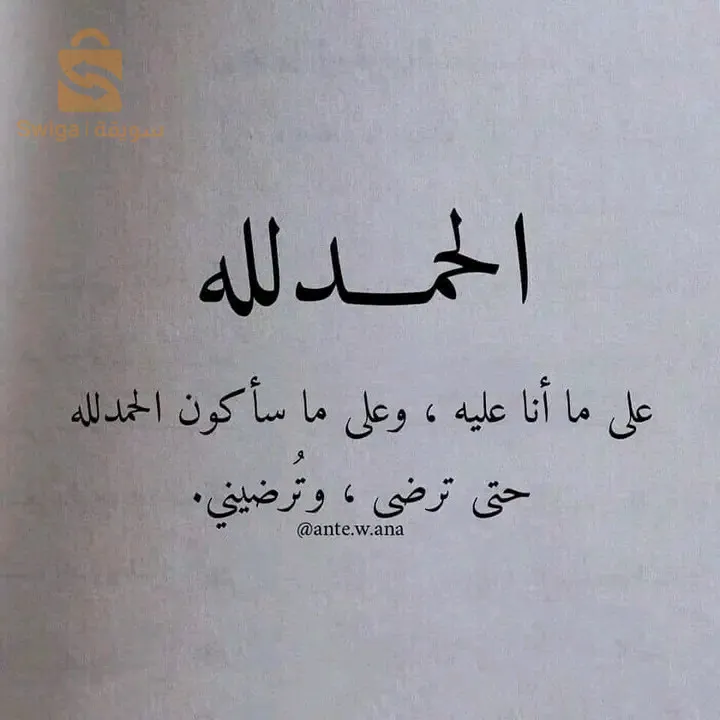 Swiga | سويقة
الحمدلله
على ما أنا عليه ، وعلى ما سأكون الحمدلله
حتى ترضى ، وتُرضيني.
@ante.w.ana